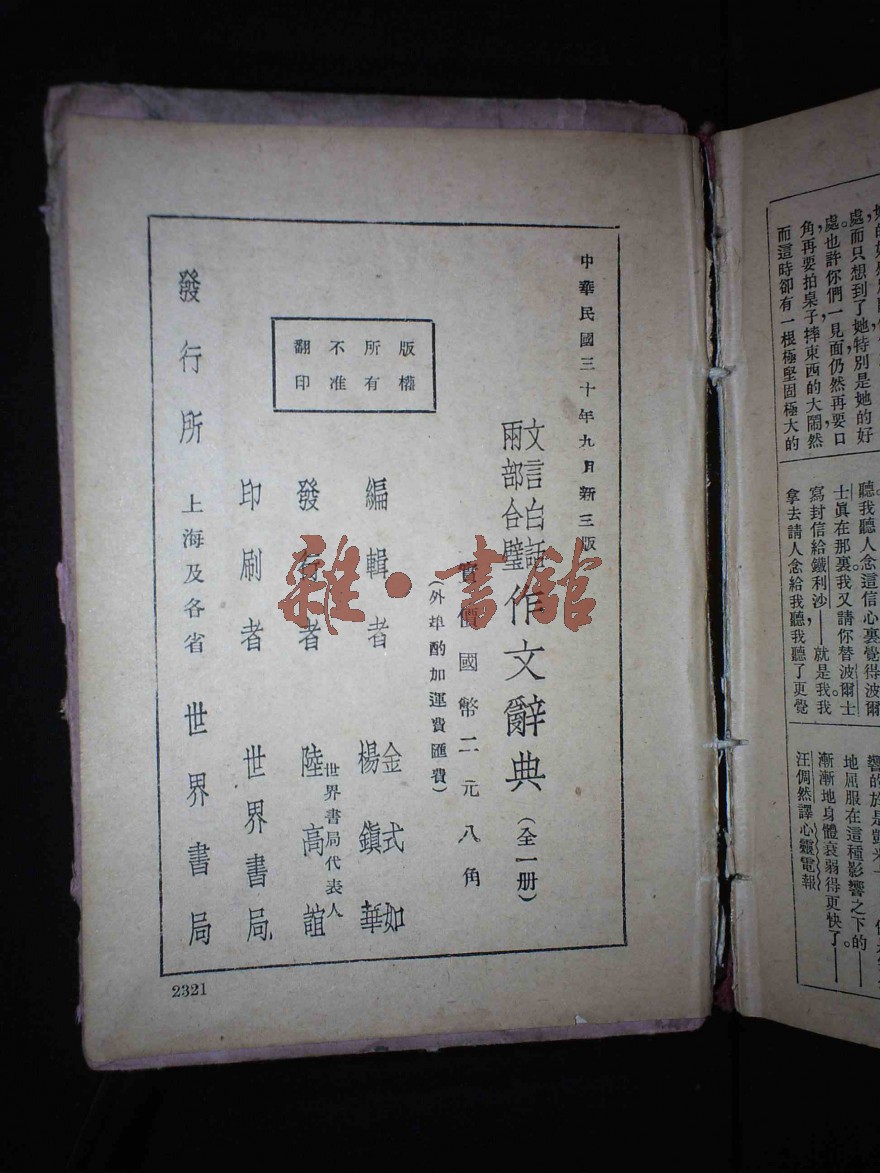 中華民國三十年九月新三版
文言白話
兩部合璧
作文辭典(全一册)
實價國幣二元八角
(外埠酌加運費匯費)
版權
所有
不准
翻印
編輯者 金式如
楊鎭華
發行者 世界書局代表人
陸高誼
印刷者 世界書局
發行所 上海及各省 世界書局
2321
雜·書館
處而只想到了她特別是她的好
處。也許你們一見面,仍然再要口
角,再要拍桌子摔東西的大鬧,然
而這時卻有一根極堅固極大的
聽。我聽人念這信,心裏覺得波爾
士眞在那裏。我又請你替波爾士
寫封信給鐵利沙——就是我。我
拿去請人念給我聽,我聽了更覺
地屈服在這種影響之下的——
漸漸地身體衰弱得更快了——
汪倜然譯心靈電報